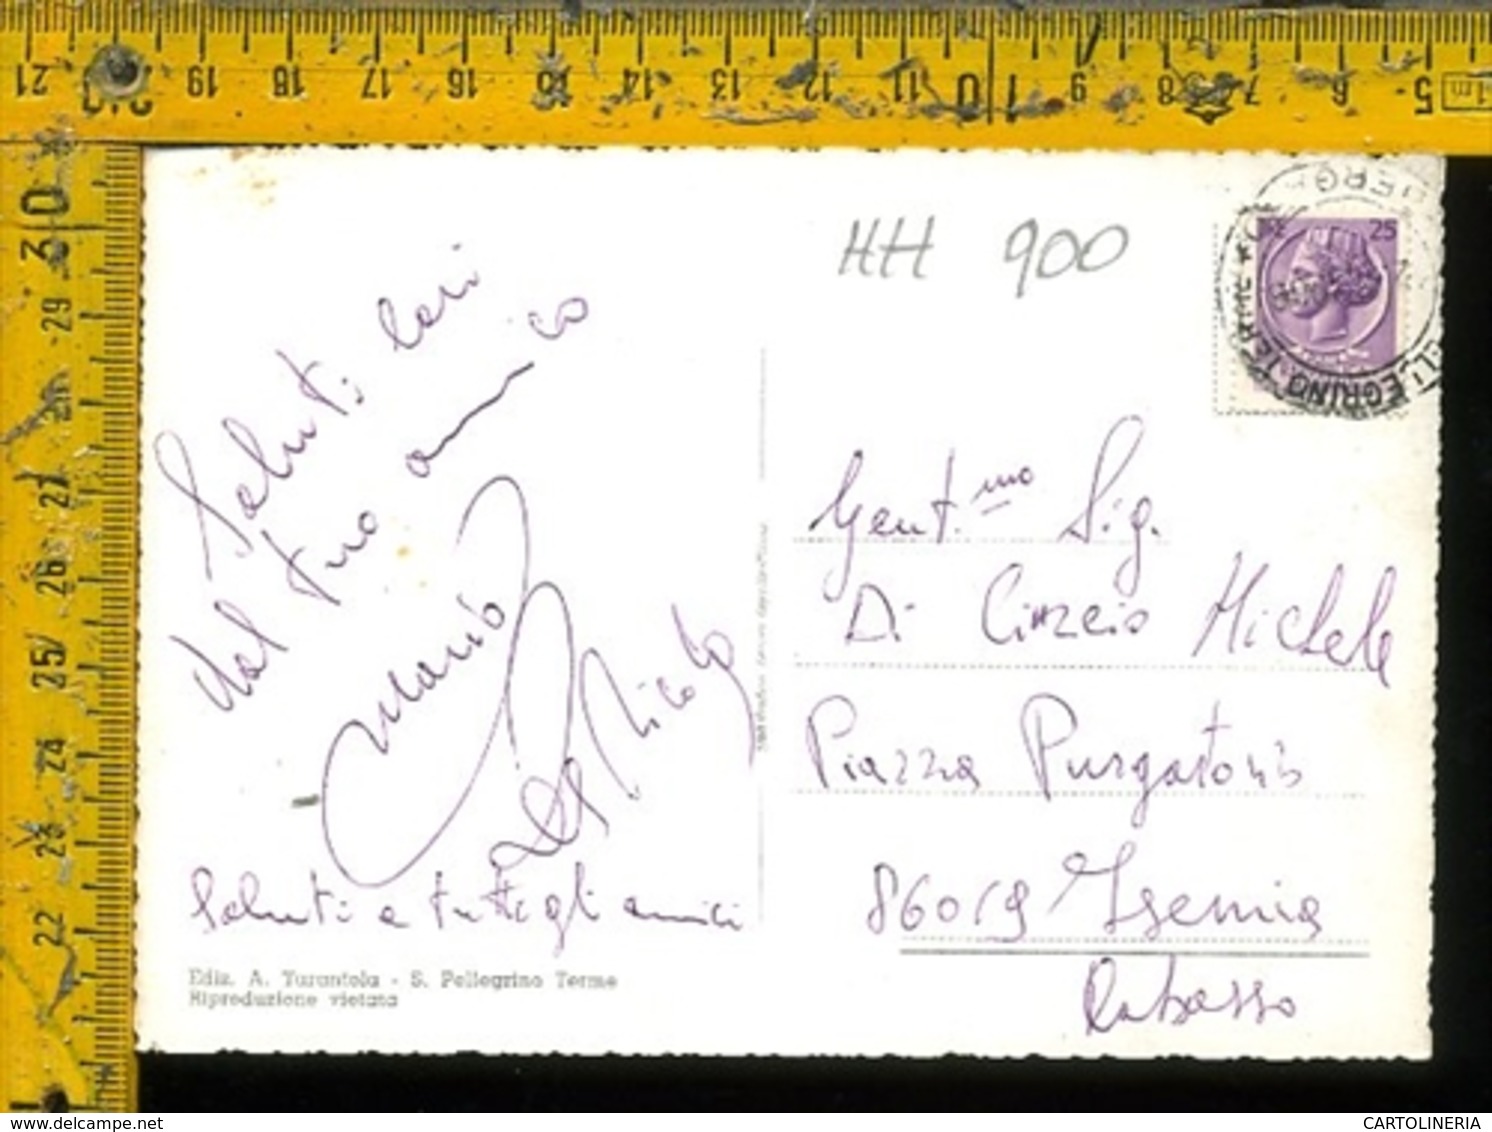 HH 900
25
Saluti cari
dal tuo amico
Mario
De Nicola
Saluti a tutti gli amici
Ediz. A. Tarantola - S. Pellegrino Terme
Riproduzione vietata
Gent.mo Sig.
Di Cinzio Michele
Piazza Purgatorio
86019 Isernia
21 19 18 17 16 15 14 13 12 11 10 9 8 7 6 5 1m
30
29
28
27
26
25
24
23
22
www.delcampe.net
CARTOLINERIA